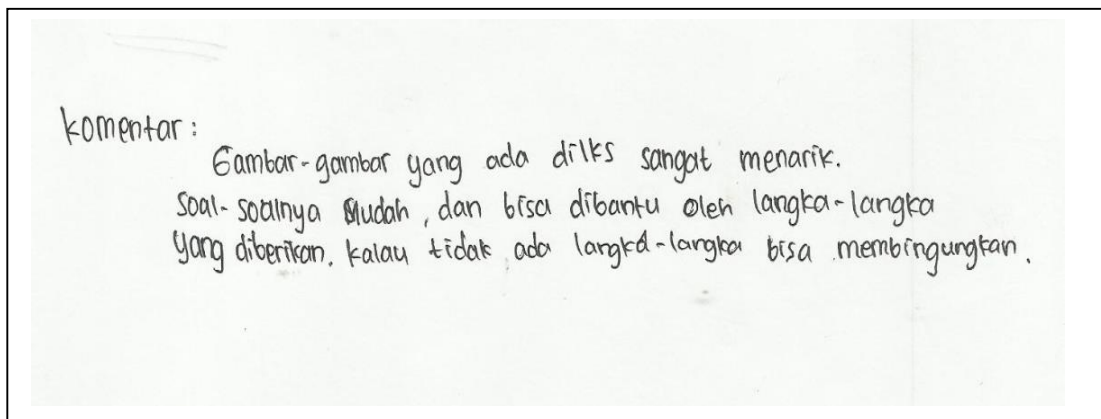 komentar:
Gambar-gambar yang ada dilks sangat menarik.
Soal-soalnya mudah, dan bisa dibantu oleh langka-langka
yang diberikan. kalau tidak ada langka-langka bisa membingungkan.